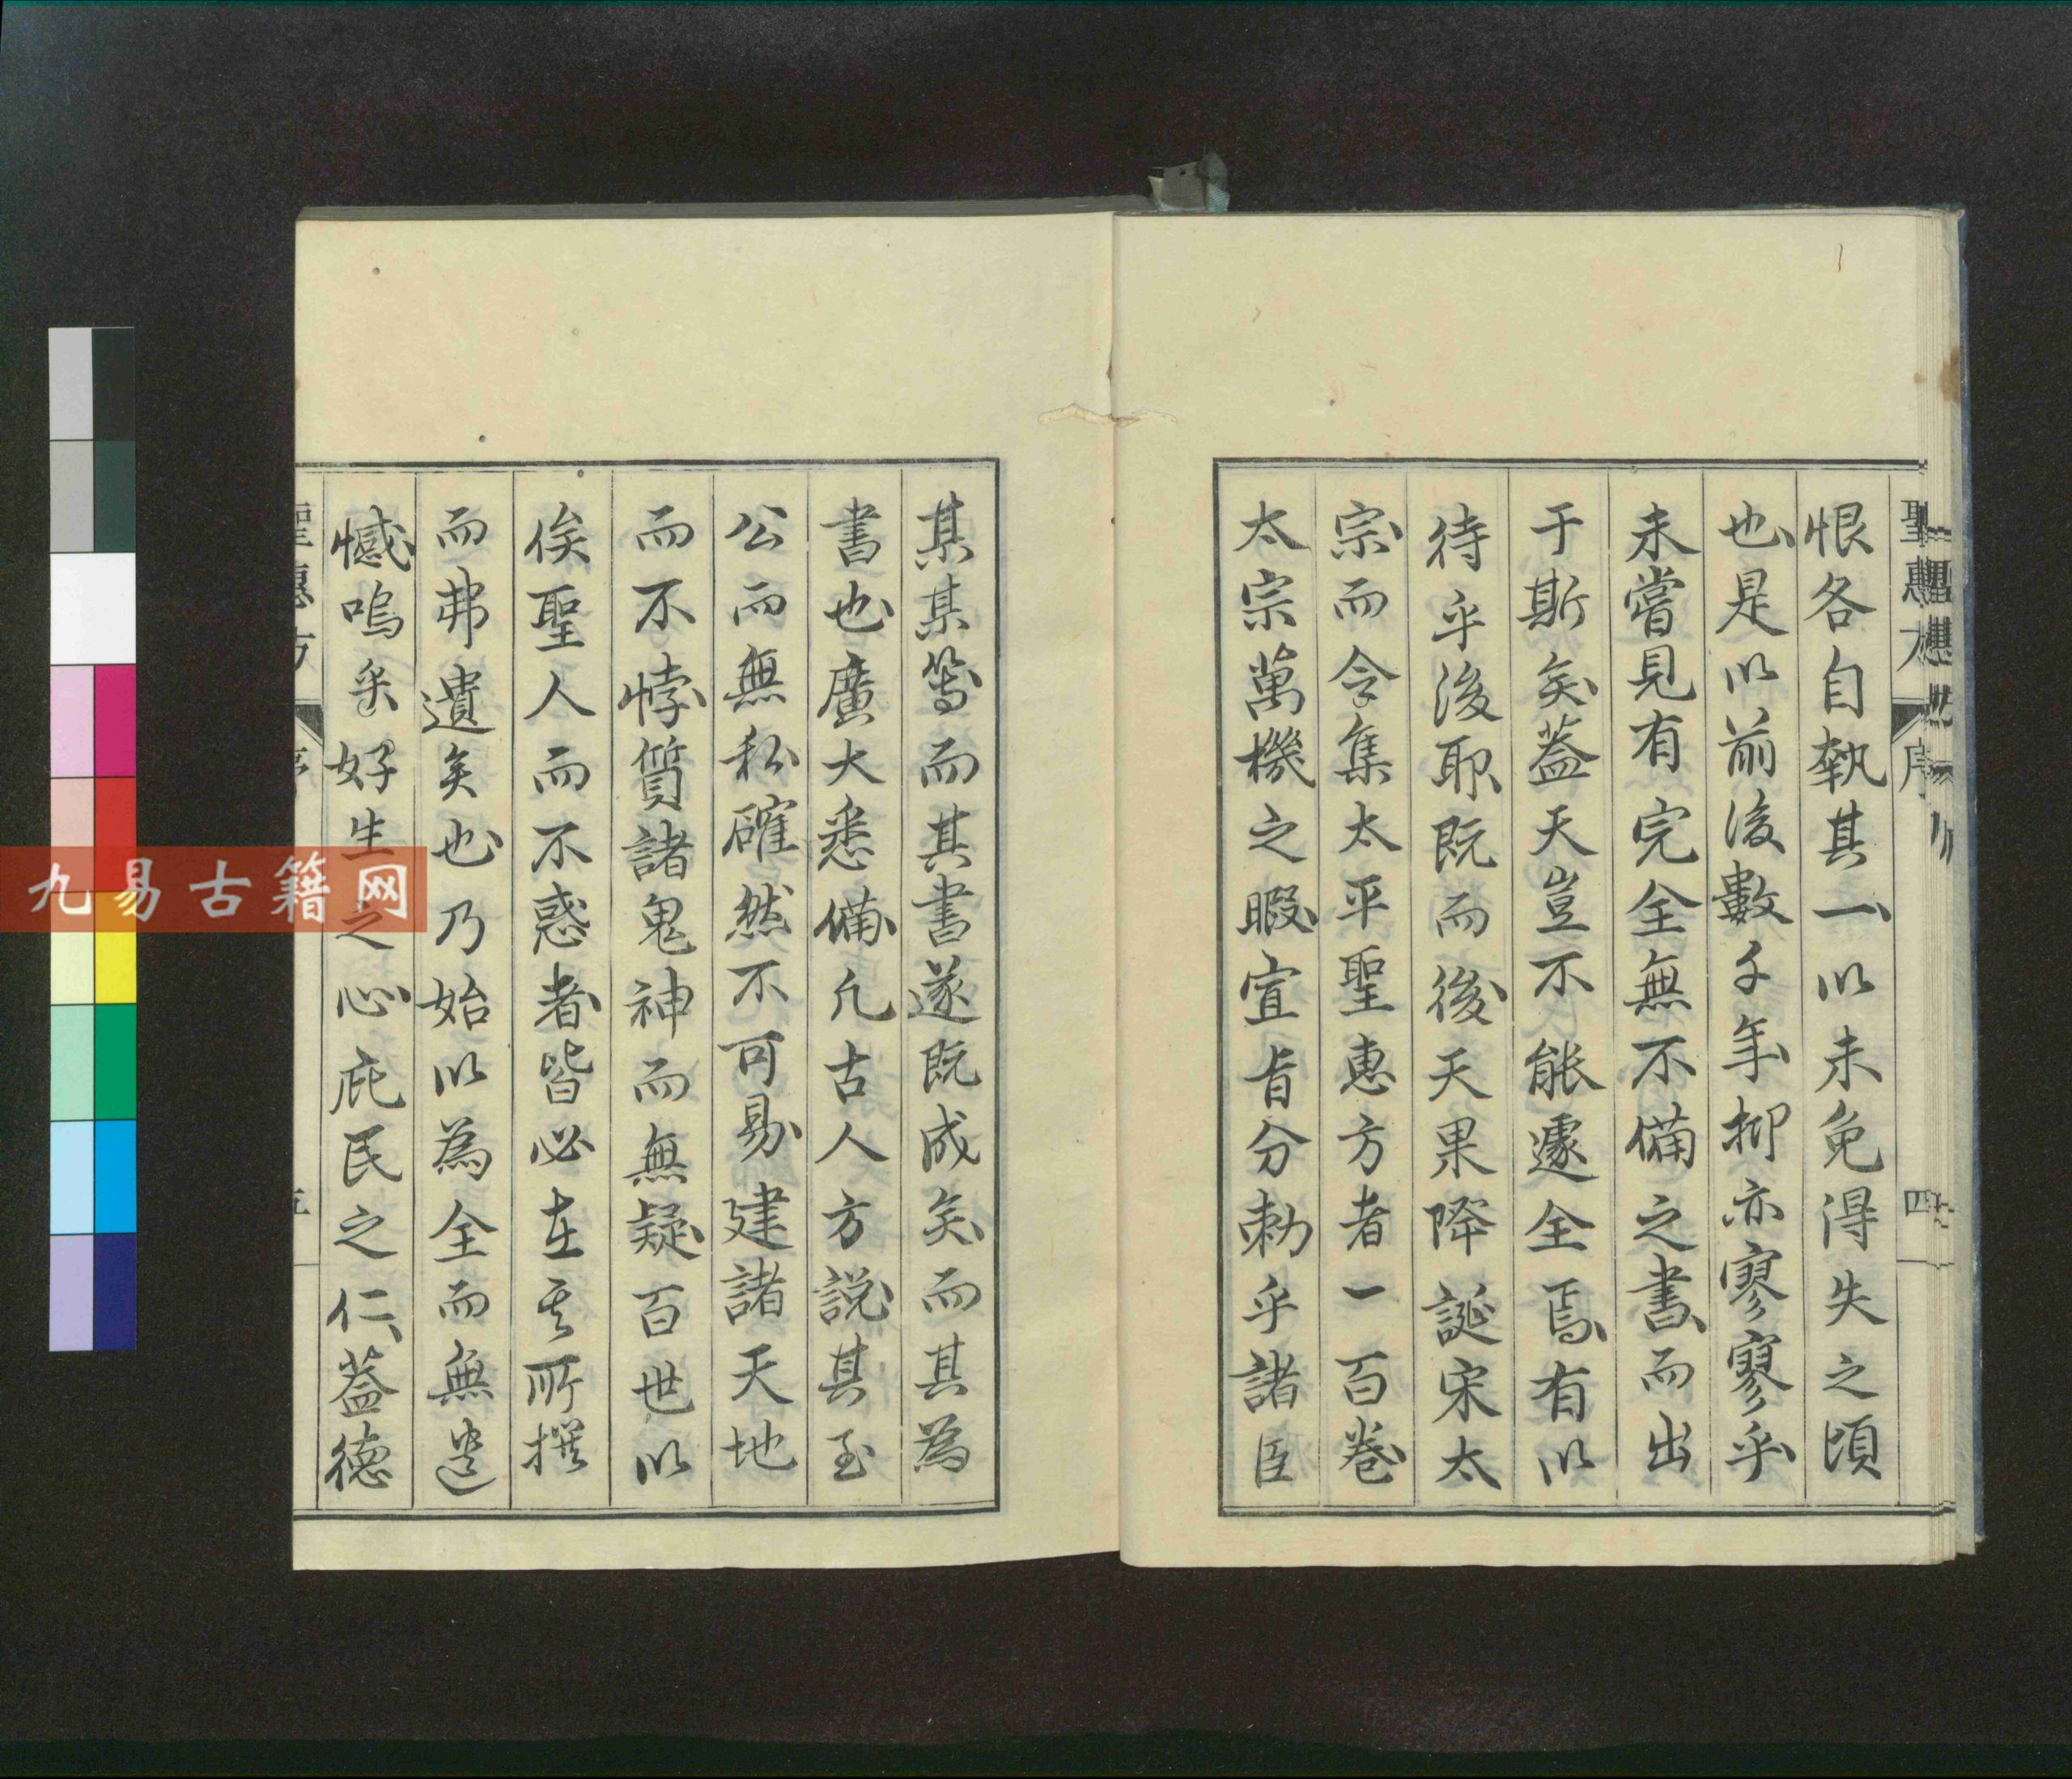 聖惠方 序 四
恨各自執其一以未免得失之頃
也是以前後數千年抑亦寥寥乎
未嘗見有完全無不備之書而出
于斯矣蓋天豈不能遽全焉有以
待乎後耶既而後天果降誕宋太
宗而令集太平聖惠方者一百卷
太宗萬機之暇宣旨分勅乎諸臣
某某等而其書遂既成矣而其為
書也廣大悉備凡古人方說其至
公而無私確然不可易建諸天地
而不悖質諸鬼神而無疑百世以
俟聖人而不惑者皆必在其所撰
而弗遺矣也乃始以為全而無遺
憾嗚乎好生之心庇民之仁蓋德
聖惠方 序 五
九易古籍网